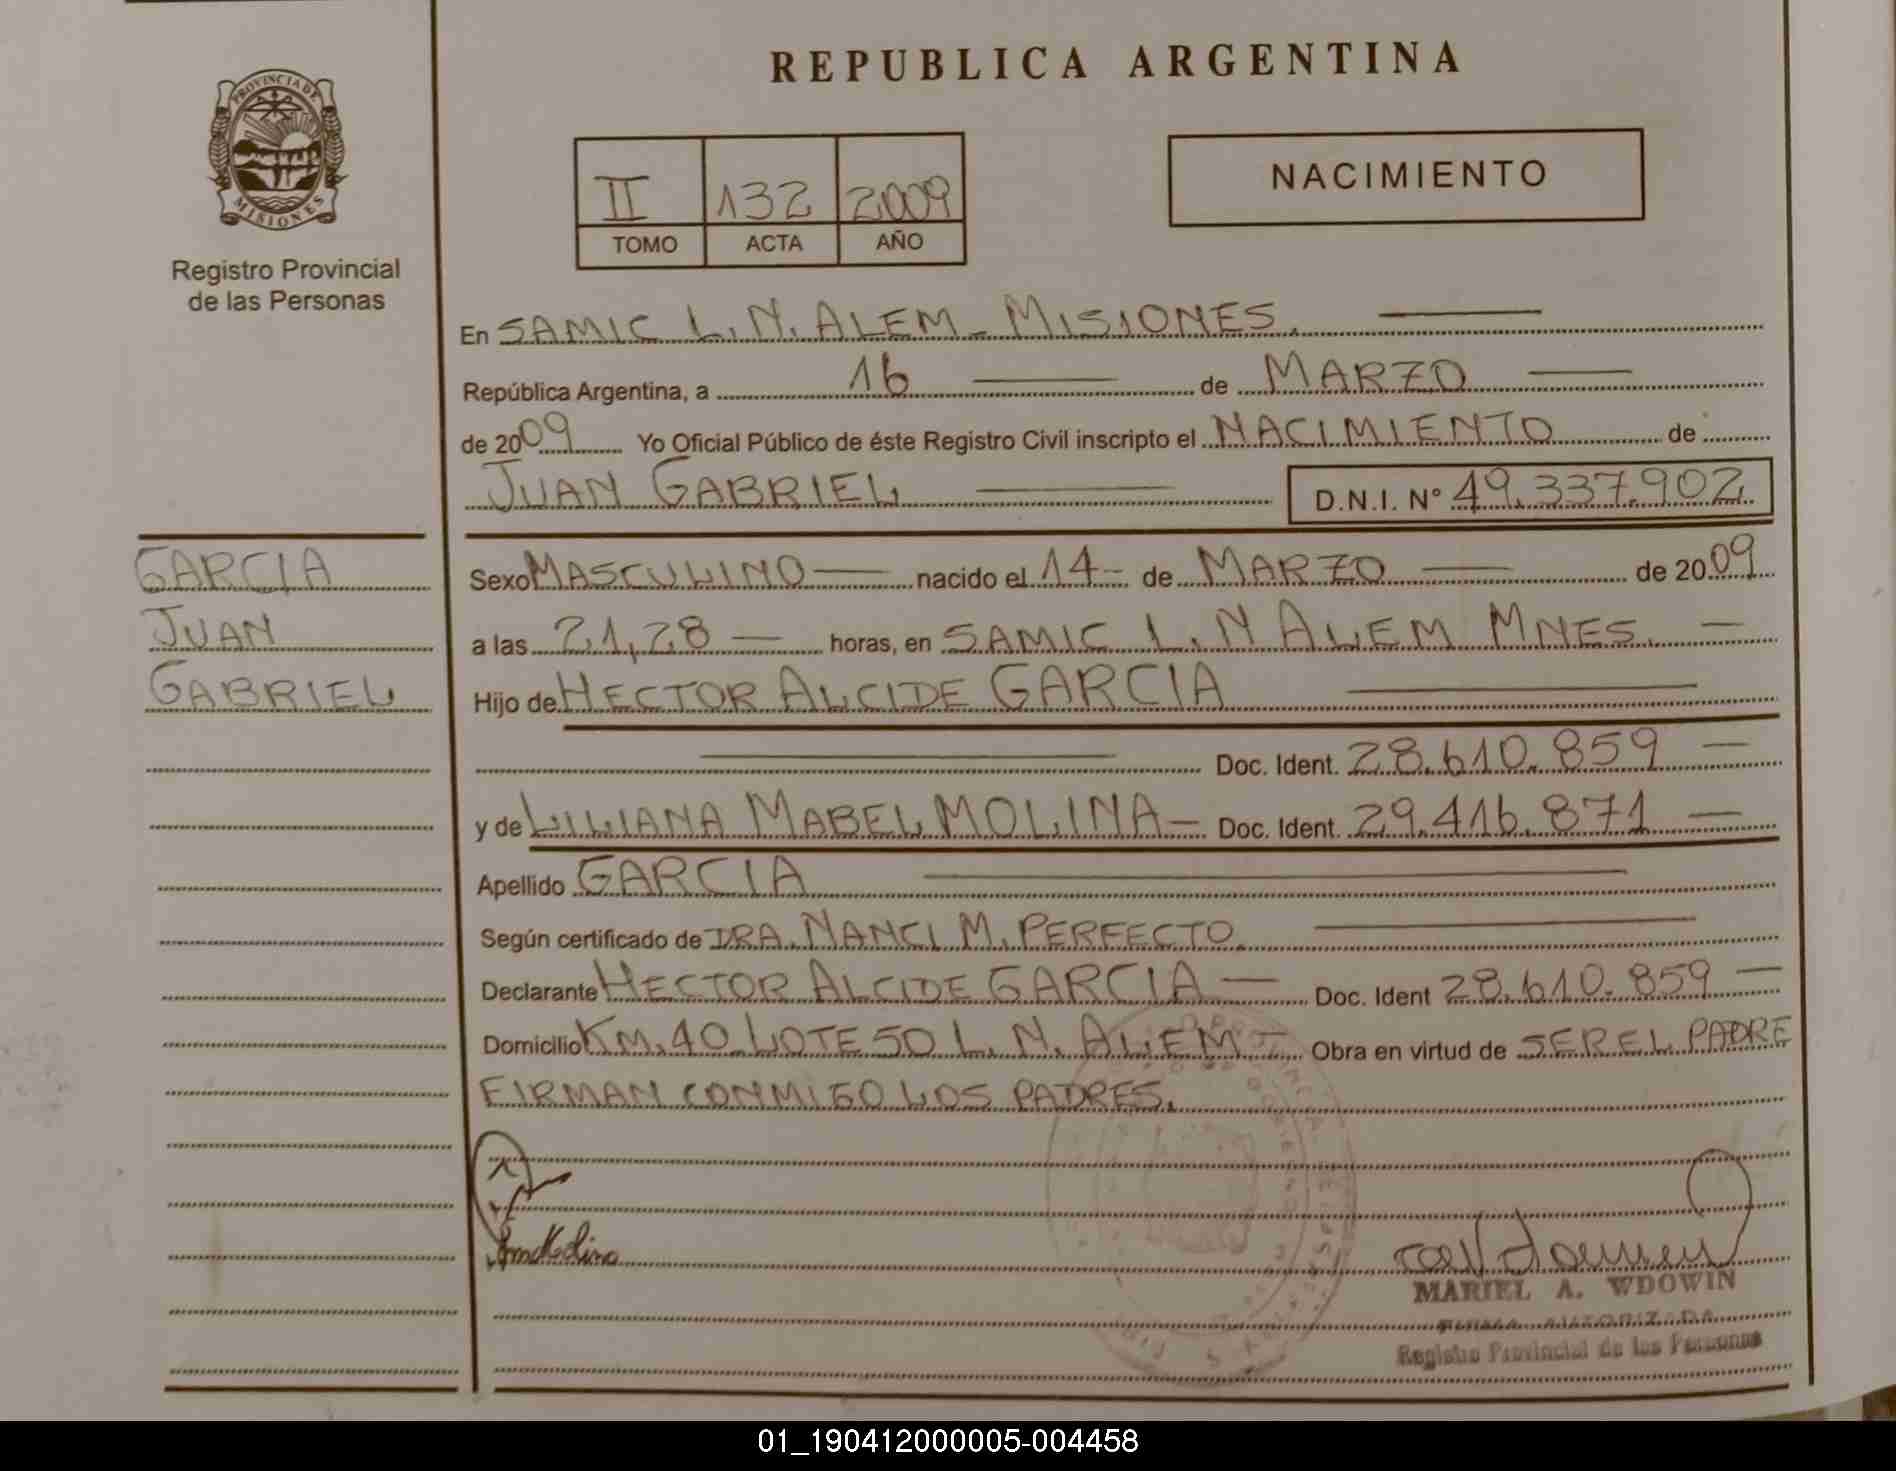 REPUBLICA ARGENTINA
PROVINCIA DE
MISIONES
Registro Provincial
de las Personas
II 132 2009
TOMO ACTA AÑO
NACIMIENTO
En SAMIC L.N. ALEM - MISIONES.
República Argentina, a 16 de MARZO
de 2009 Yo Oficial Público de éste Registro Civil inscripto el NACIMIENTO de
JUAN GABRIEL D.N.I. N° 49.337.902
GARCIA
JUAN
GABRIEL
Sexo MASCULINO nacido el 14 de MARZO de 2009
a las 21,28 horas, en SAMIC L.N ALEM MNES.
Hijo de HECTOR ALCIDE GARCIA
Doc. Ident. 28.610.859
y de LILIANA MABEL MOLINA Doc. Ident. 29.416.871
Apellido GARCIA
Según certificado de DRA. NANCI M. PERFECTO.
Declarante HECTOR ALCIDE GARCIA Doc. Ident 28.610.859
Domicilio KM. 40 LOTE 50 L. N. ALEM Obra en virtud de SER EL PADRE
FIRMAN CONMIGO LOS PADRES.
MARIEL A. WDOWIN
FIRMA AUTORIZADA
Registro Provincial de las Personas
01_190412000005-004458